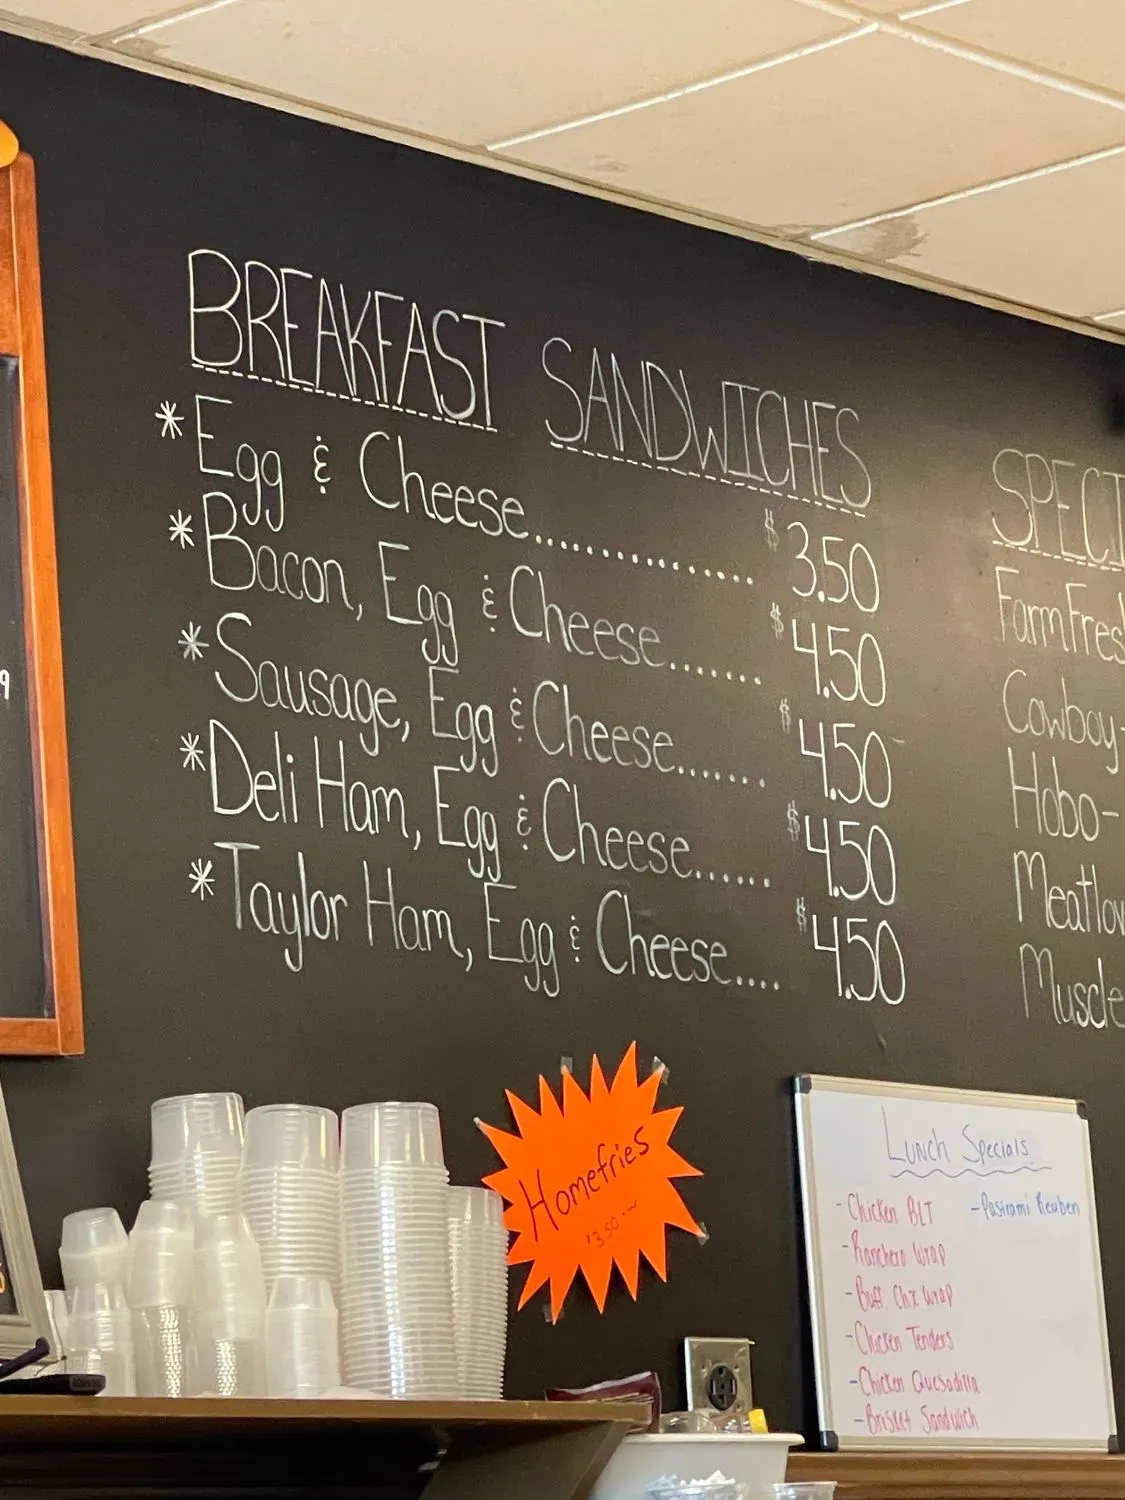 BREAKFAST SANDWICHES
*Egg & Cheese............... $3.50
*Bacon, Egg & Cheese....... $4.50
*Sausage, Egg & Cheese....... $4.50
*Deli Ham, Egg & Cheese...... $4.50
*Taylor Ham, Egg & Cheese.... $4.50
SPECI
FarmFres
Cowboy-
Hobo-
Meatlov
Muscle
9
Homefries
$3.50
Lunch Specials
-Chicken BLT
-Ranchero Wrap
-Buff. Chx Wrap
-Chicken Tenders
-Chicken Quesadilla
-Brisket Sandwich
-Pastrami Reuben